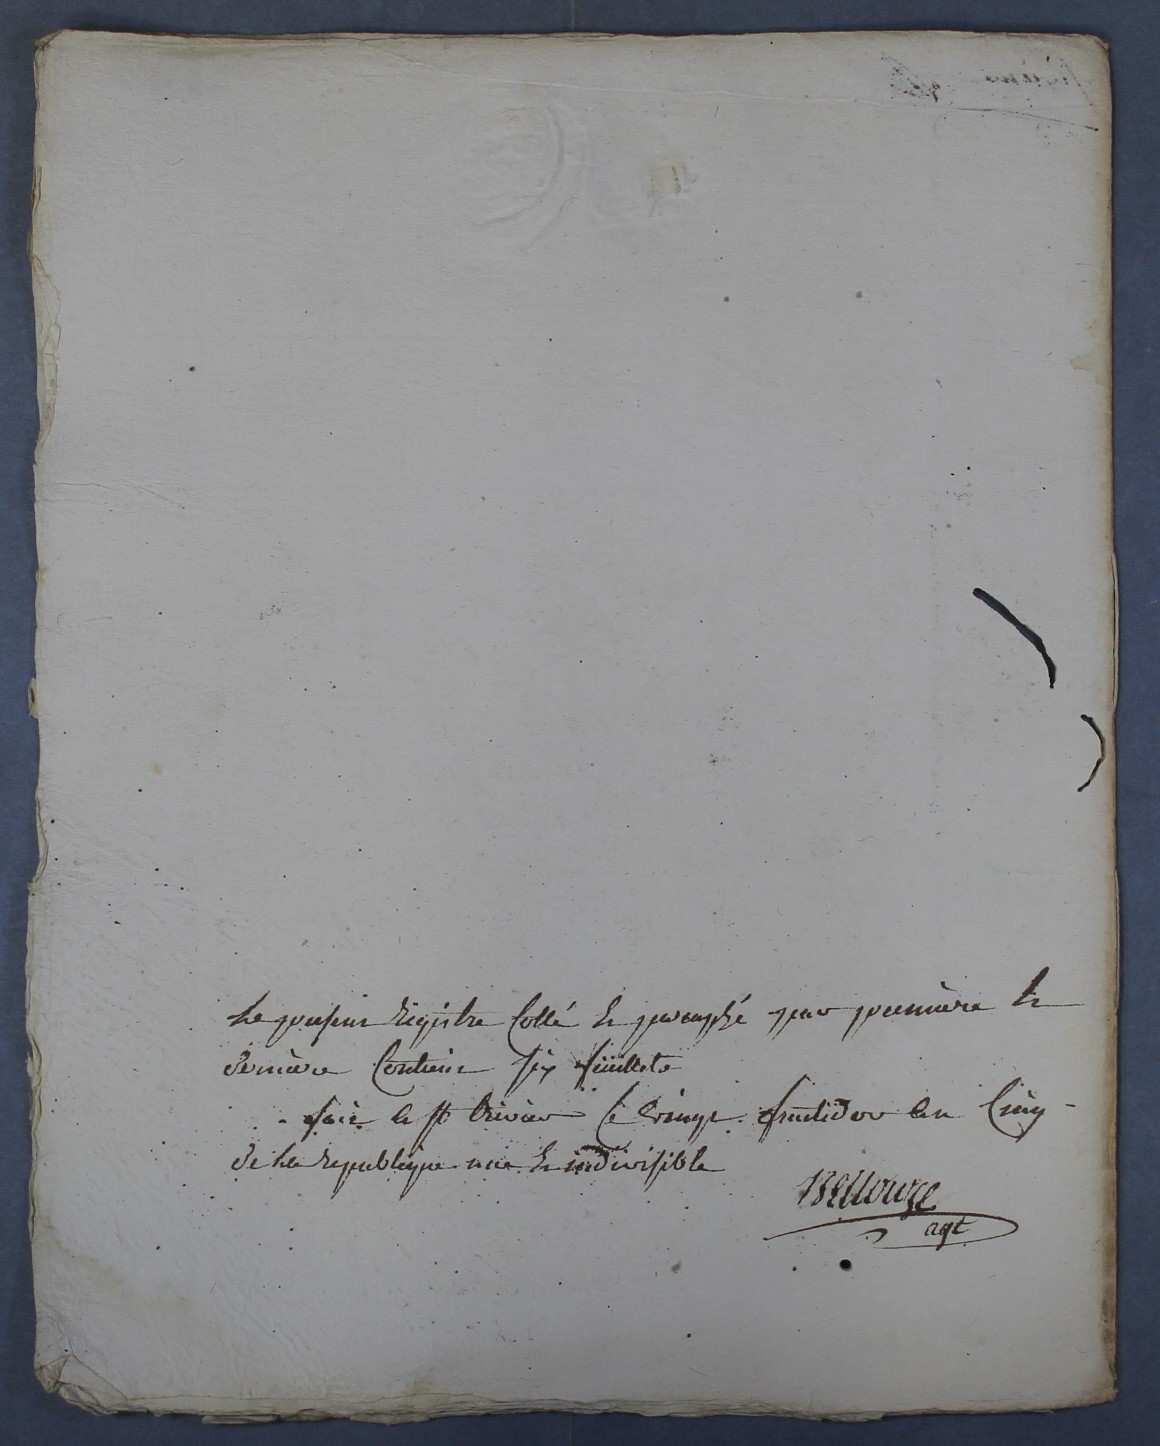 Le present registre Cotté et paraphé par premiere et
derniere Contient six feuillets
fait a st trivier le vingt fructidor an Cinq
de la republique une et indivisible
agt